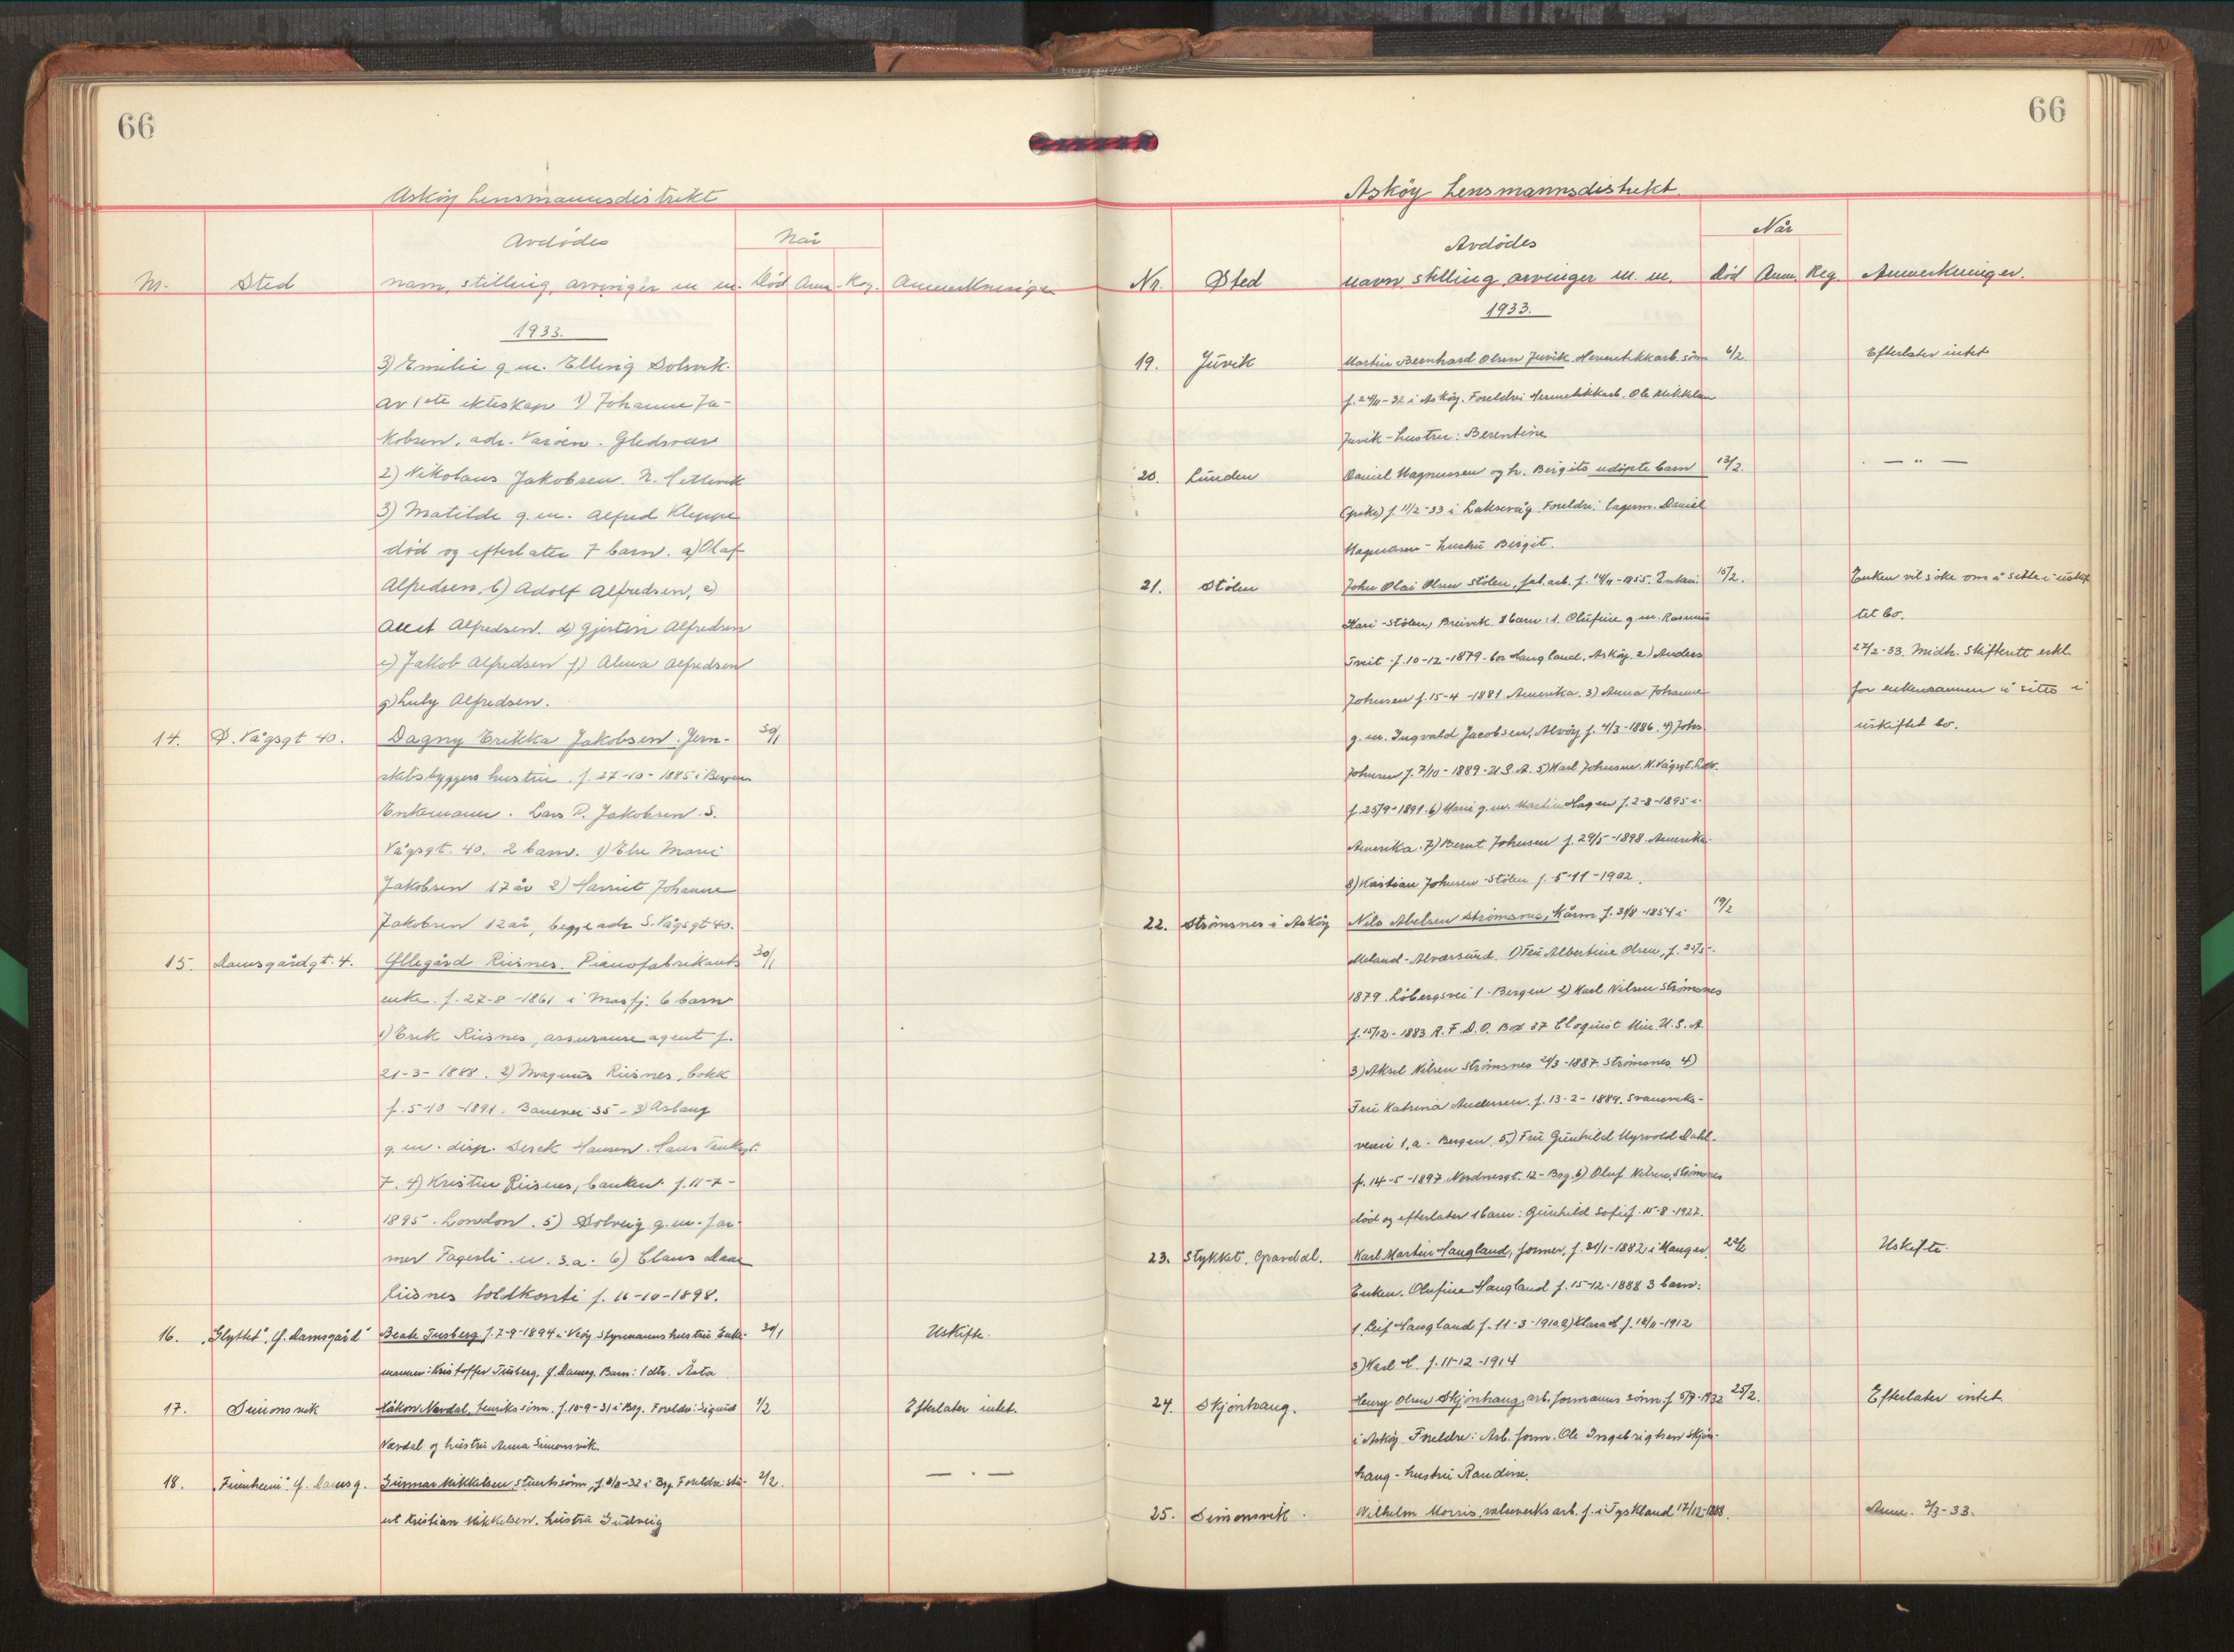 66
Askøy Lensmannsdistrikt
Avdødes
Når
Nr. Sted navn, stilling, arvinger m m. Død Anm. Reg. Anmerkninger
1933.
3) Emilie g. m. Elling Solsvik.
av 1ste ekteskap 1) Johanne Ja-
kobsen, adr. Glesvær
2) Nikolaus Jakobsen.
3) Matilde g. m. Alfred Kleppe
død og efterlater 7 barn. a) Olaf
Alfredsen, b) Adolf Alfredsen, c)
Alfredsen. d) Gjertin Alfredsen
e) Jakob Alfredsen f) Alma Alfredsen
g) Luly Alfredsen.
14. S. Vågsgt 40. Dagny Erikka Jakobsen. Jern- 30/1
skibsbyggers hustru. f. 27-10-1885 i Bergen
Enkemann. Lars P. Jakobsen. S.
Vågsgt. 40. 2 barn. 1) Else Marie
Jakobsen 17 år 2) Harriet Johanne
Jakobsen 12 år, begge adr S. Vågsgt 40.
15. Damsgårdgt. 4. Ellegård Riisnes. Pianofabrikants 30/1
enke. f. 27-8-1861 i Masfj. 6 barn
1) Erik Riisnes, assuranse agent f.
21-3-1888. 2) Magnus Riisnes, bokk
f. 5-10-1891. 35 - 3) Aslaug
g. m. disp. Hansen. Hans Tanksgt.
7. 4) Kristen Riisnes, f. 11-7-
1895. London. 5) Solveig g. m. far-
mer Fagerli. u. s. a. 6) Claus
Riisnes toldkonti f. 16-10-1898.
16. "Slyttet", G. Damsgård Beate Tusberg f. 7-9-1894 i Styrmanns hustru Enke- 30/1 Uskifte.
mannen: Kristoffer Tusberg, G. Damsg. Barn: 1 dtr. Åsta
17. Simonsvik Håkon Nævdal, f. 10-9-31 i Brg. Foreldre: Sigurd 1/2 Efterlater intet.
Nævdal og hustru Anna Simonsvik.
18. G. Damsg. Gunnar Mikkelsen, stuerts sønn, f. -32 i Brg. Foreldre: stu- 2/2. — . —
ert Kristian Mikkelsen. hustru Gudveig
66
Askøy Lensmannsdistrikt.
Når
Avdødes
Nr. Sted navn stilling arvinger m. m. Død Anm. Reg. Anmerkninger.
1933.
19. Juvik Martin Bernhard Olsen Juvik. Hermetikkarb. sønn 6/2. Efterlater intet
f. -32 i Askøy. Foreldre: Hermetikkarb. Ole Mikkelsen
Juvik - hustru: Berentine
20. Lunden Daniel Magnussen og h. Birgits udøpte barn 12/2. — " —
(pike) f. 11/2-33 i Laksevåg. Foreldre: lagerm. Daniel
Magnussen - hustru Birgit.
21. Stølen John Olai Olsen Stølen, fab. arb. f. -1855. Enken: 15/2. Enken vil søke om å sitte i uskif
Kari Stølen, Breivik. 8 barn: 1. Olufine g. m. Rasmus tet bo.
f. 10-12-1879 - bor Haugland, Askøy. 2) Anders 27/2-33. Midh. Skifterett erkl.
Johnsen f. 15-4-1881. Amerika. 3) Anna Johanne for å sitte i
g. m. Ingvald Jacobsen, Alvøy f. 4/3-1886. 4) Johs. uskiftet bo.
Johnsen f. 7/10-1889 - U. S. A. 5) Karl Johnsen. N. Vågsgt.
f. 25/9-1891. 6) Marie g. m. Martin Hagen f. 2-8-1895 i
Amerika. 7) Bernt Johnsen f. 29/5-1898. Amerika.
8) Kristian Johnsen Stølen f. 5-11-1902.
22. Strømsnes i Askøy Nils Abelsen Strømsnes, Kårm. f. 31/8-1854 i 19/2
Meland - Alversund. 1) Fru Albertine Olsen, f. 25/5-
1879. Løbergsvei 1. Bergen 2) Karl Nilsen Strømsnes
f. 15/12-1883 R. F. D. O. Box 37 Cloquist Min. U. S. A.
3) Aksel Nilsen Strømsnes -1887. Strømsnes 4)
Fru Katrina Andersen. f. 13-2-1889.
1. a. Bergen 5) Fru Gunhild Myrvold Dahl.
f. 14-5-1897. Nordnesgt. 12 - Brg. 6) Oluf Nilsen, Strømsnes
død og efterlater 1 barn: Gunhild Sofie f. 15-8-1927.
23. Stykket, Gravdal. Karl Martin Haugland, former, f. 21/1-1882 i Manger. 22/2 Uskifte.
Enken. Olufine Haugland f. 15-12-1888 3 barn:
1. Leif Haugland f. 11-3-1910. 2) Klara H. f. -1912
3) Karl H. f. 11-12-1914
24. Skjønhaug. Henry Olsen Skjønhaug, arb. formanns sønn. f. -1932 25/2. Efterlater intet
i Askøy. Foreldre: Arb. form. Ole Ingebrigtsen Skjøn-
haug - hustru Randine.
25. Simonsvik. Wilhelm Morris, valseverks arb. f. i Tyskland 17/12-1868. Anm. 2/3-33.